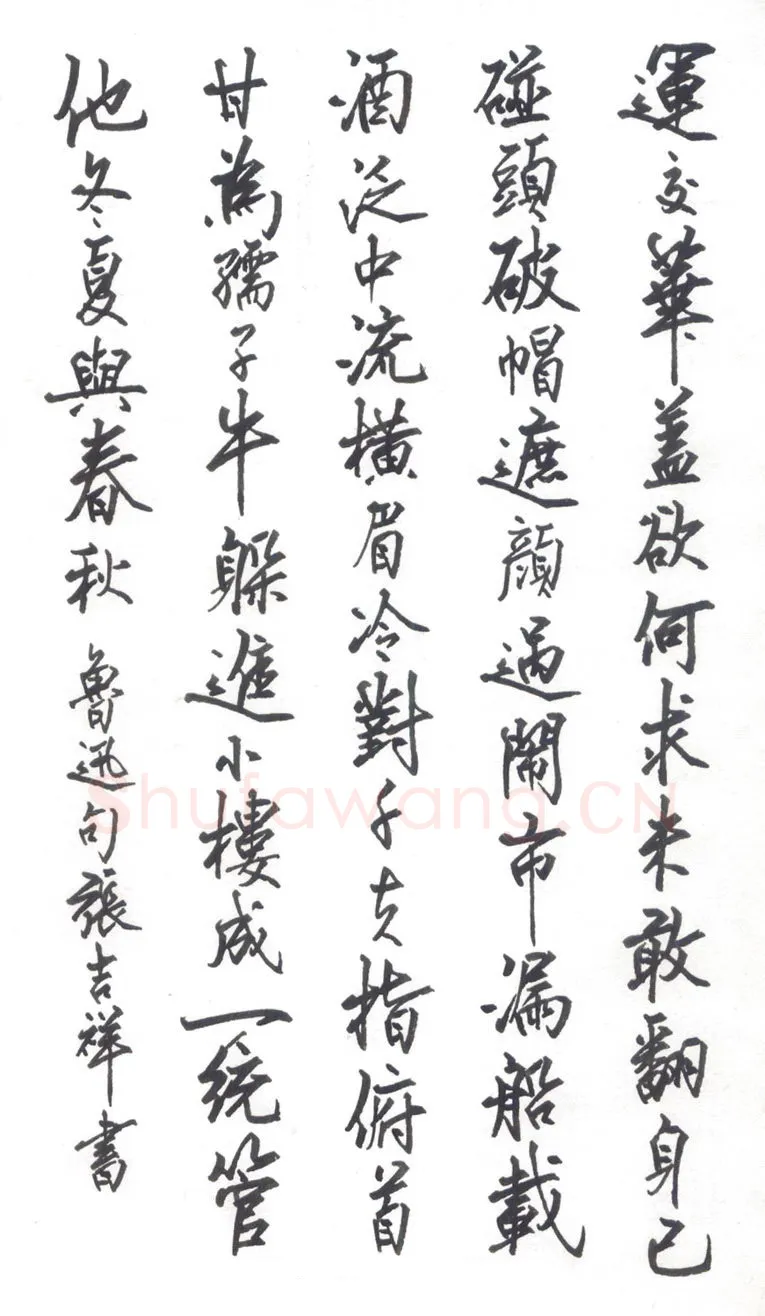 運交華盖欲何求未敢翻身已
碰頭破帽遮顔過鬧市漏船載
酒泛中流橫眉冷對千夫指俯首
甘為孺子牛躲進小樓成一统管
他冬夏與春秋 魯迅句張吉祥書
Shufawang.CN